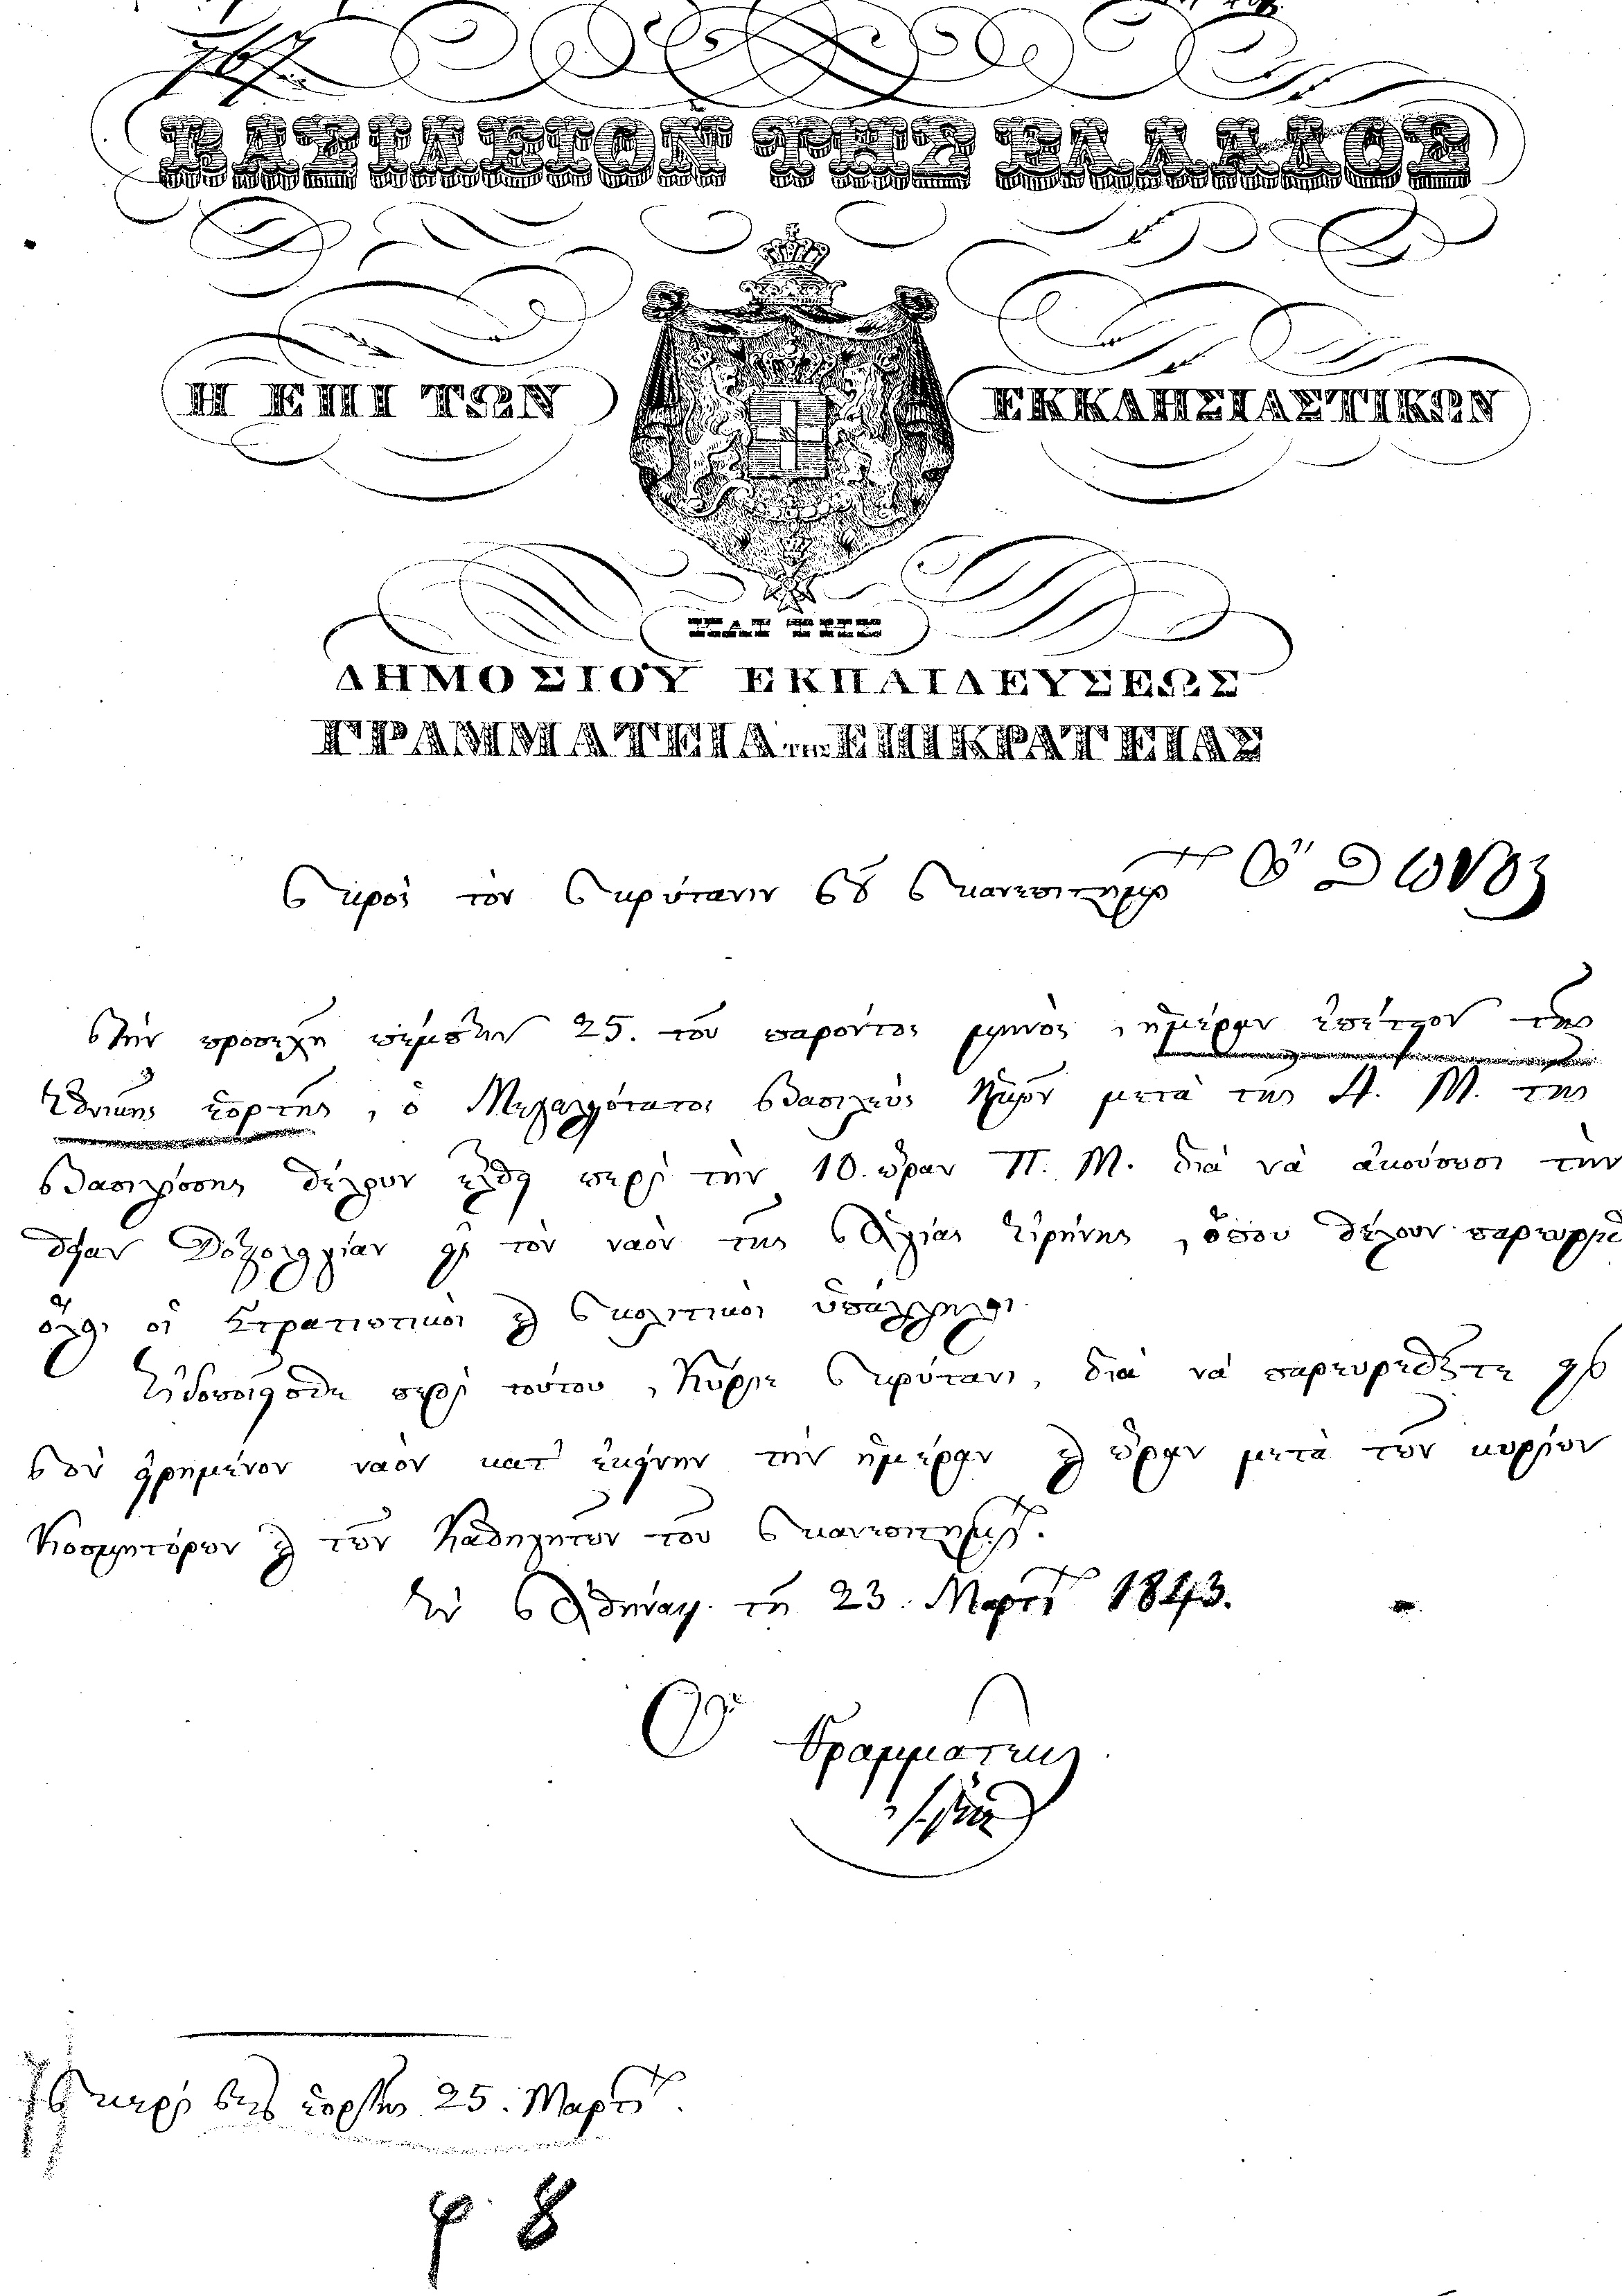 767
ΒΑΣΙΛΕΙΟΝ ΤΗΣ ΕΛΛΑΔΟΣ
Η ΕΠΙ ΤΩΝ ΕΚΚΛΗΣΙΑΣΤΙΚΩΝ
ΚΑΙ ΤΗΣ
ΔΗΜΟΣΙΟΥ ΕΚΠΑΙΔΕΥΣΕΩΣ
ΓΡΑΜΜΑΤΕΙΑ της ΕΠΙΚΡΑΤΕΙΑΣ
Πρὸς τὸν Πρύτανιν τοῦ Πανεπιστημίου Ὄθωνος
Τὴν προσεχῆ πέμπτην 25. τοῦ παρόντος μηνὸς, ἡμέραν ἐπέτειον τῆς
Ἐθνικῆς ἑορτῆς, ὁ Μεγαλειότατος Βασιλεὺς ἡμῶν μετὰ τῆς Α. Μ. τῆς
Βασιλίσσης θέλουν ἔλθη περὶ τὴν 10. ὥραν Π. Μ. διὰ νὰ ἀκούσωσι τὴν
θείαν Δοξολογίαν εἰς τὸν ναὸν τῆς Ἁγίας Εἰρήνης, ὅπου θέλουν παρευρεθῆ
ὅλοι οἱ Στρατιωτικοὶ καὶ Πολιτικοὶ ὑπάλληλοι.
Εἰδοποιεῖσθε περὶ τούτου, Κύριε Πρύτανι, διὰ νὰ παρευρεθῆτε εἰς
τὸν εἰρημένον ναὸν κατ' ἐκείνην τὴν ἡμέραν καὶ ὥραν μετὰ τῶν κυρίων
Κοσμητόρων καὶ τῶν Καθηγητῶν τοῦ Πανεπιστημίου.
Ἐν Ἀθήναις τῇ 23. Μαρτίου 1843.
Ὁ Γραμματεὺς
Περὶ τῆς ἑορτῆς 25. Μαρτίου.
φ 8